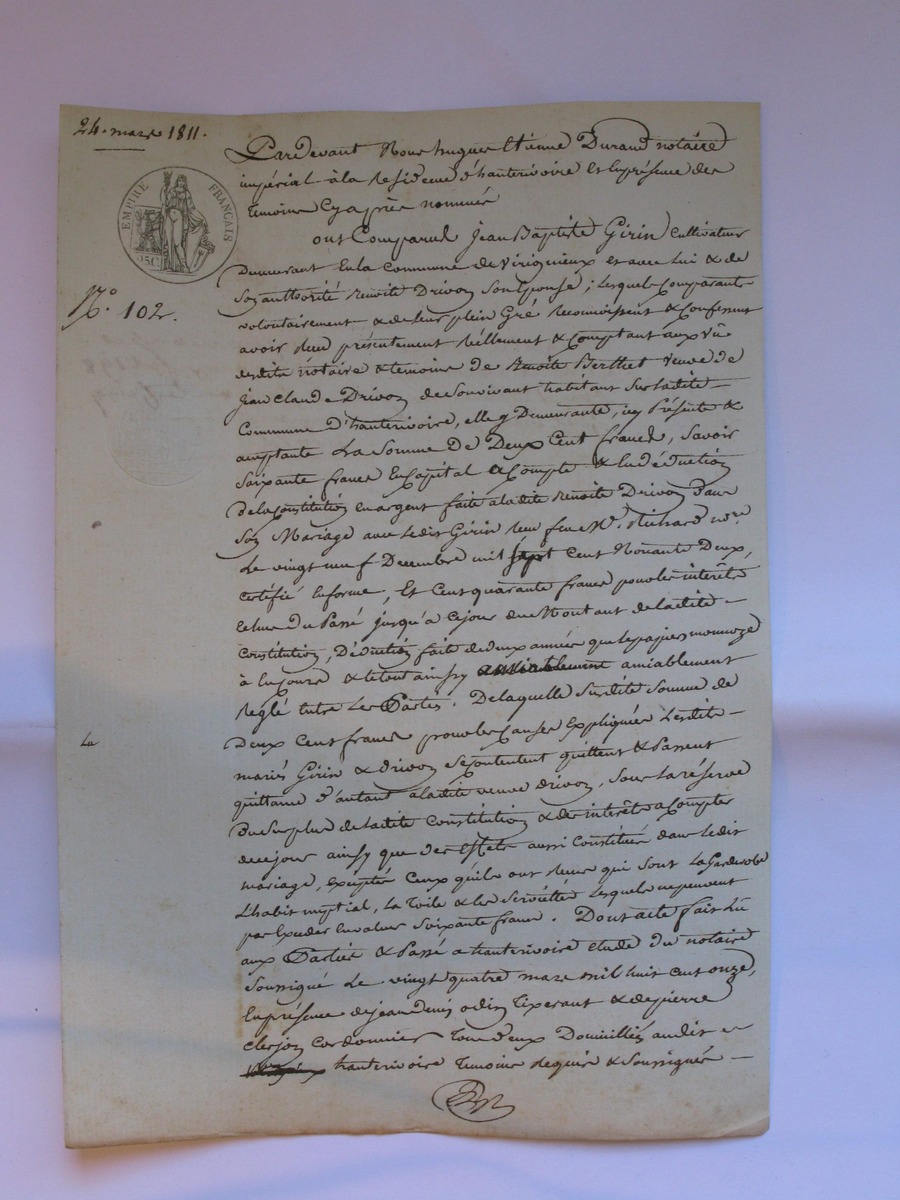 24. mars 1811.
EMPIRE FRANÇAIS
25C
N.o 102.
Pardevant Nous hugues Etienne Durand notaire
impérial à la Residence d'hauterivoire Et En présence des
temoins Cy après nommés
ont Comparus Jean Baptiste Girin Cultivateur
Demeurant En la Commune de Virigneux et avec lui & de
Son authorité Benoite Drivon Son Epouse; lesquels Comparants
volontairement & de leur plein Gré Reconnoissent & Confessent
avoir Reçu présentement Réellement & Comptant aux Vû
desdits notaire & temoins de Benoite Berthet veuve de
Jean Claude Drivon de Son vivant habitant Sur ladite
Commune d'hauterivoire, elle y Demeurante, icy Présente &
acceptante La Somme De Deux Cent francs, Savoir
Soixante francs En Capital a Compte & En déduction
De la Constitution en argent faite à ladite Benoite Drivon dans
Son Mariage avec ledit Girin Reçu feu Me. Richard nre.
Le vingt neuf Decembre mil sept Cent Nonante Deux,
certifié En forme, Et Cent quarante francs pour les intérêts
Echus Du Passé jusqu'à Ce jour du Montant de ladite
Constitution, Déduction faite de deux années que le papier monnoye
à Eu Cours & le tout ainsy amiablement
Reglé Entre Les Parties. De laquelle Susdite Somme de
Deux Cent francs pour les Causes Expliquées Lesdits
mariés Girin & drivon Se Contentent quittent & Passent
quittance d'autant à ladite veuve drivon, Sous la réserve
Du Surplus de ladite Constitution & des intérêts a Compter
de ce jour ainsy que des Effets aussi Constitués dans ledit
mariage, excepté Ceux qu'ils ont Reçus qui Sont La Garderobe
L'habit nuptial, La Toile & les Serviettes Lesquels ne peuvent
pas Exceder En valeur Soixante francs. Dont acte fait Lû
aux Parties & Passé a hauterivoire étude du notaire
Soussigné Le vingt quatre mars mil huit cent onze,
En présence de jean Denis odin Tixerant & de pierre
Clerjon Cordonnier Tous deux Domiciliés audit
hauterivoire Temoins Requis & Soussignés